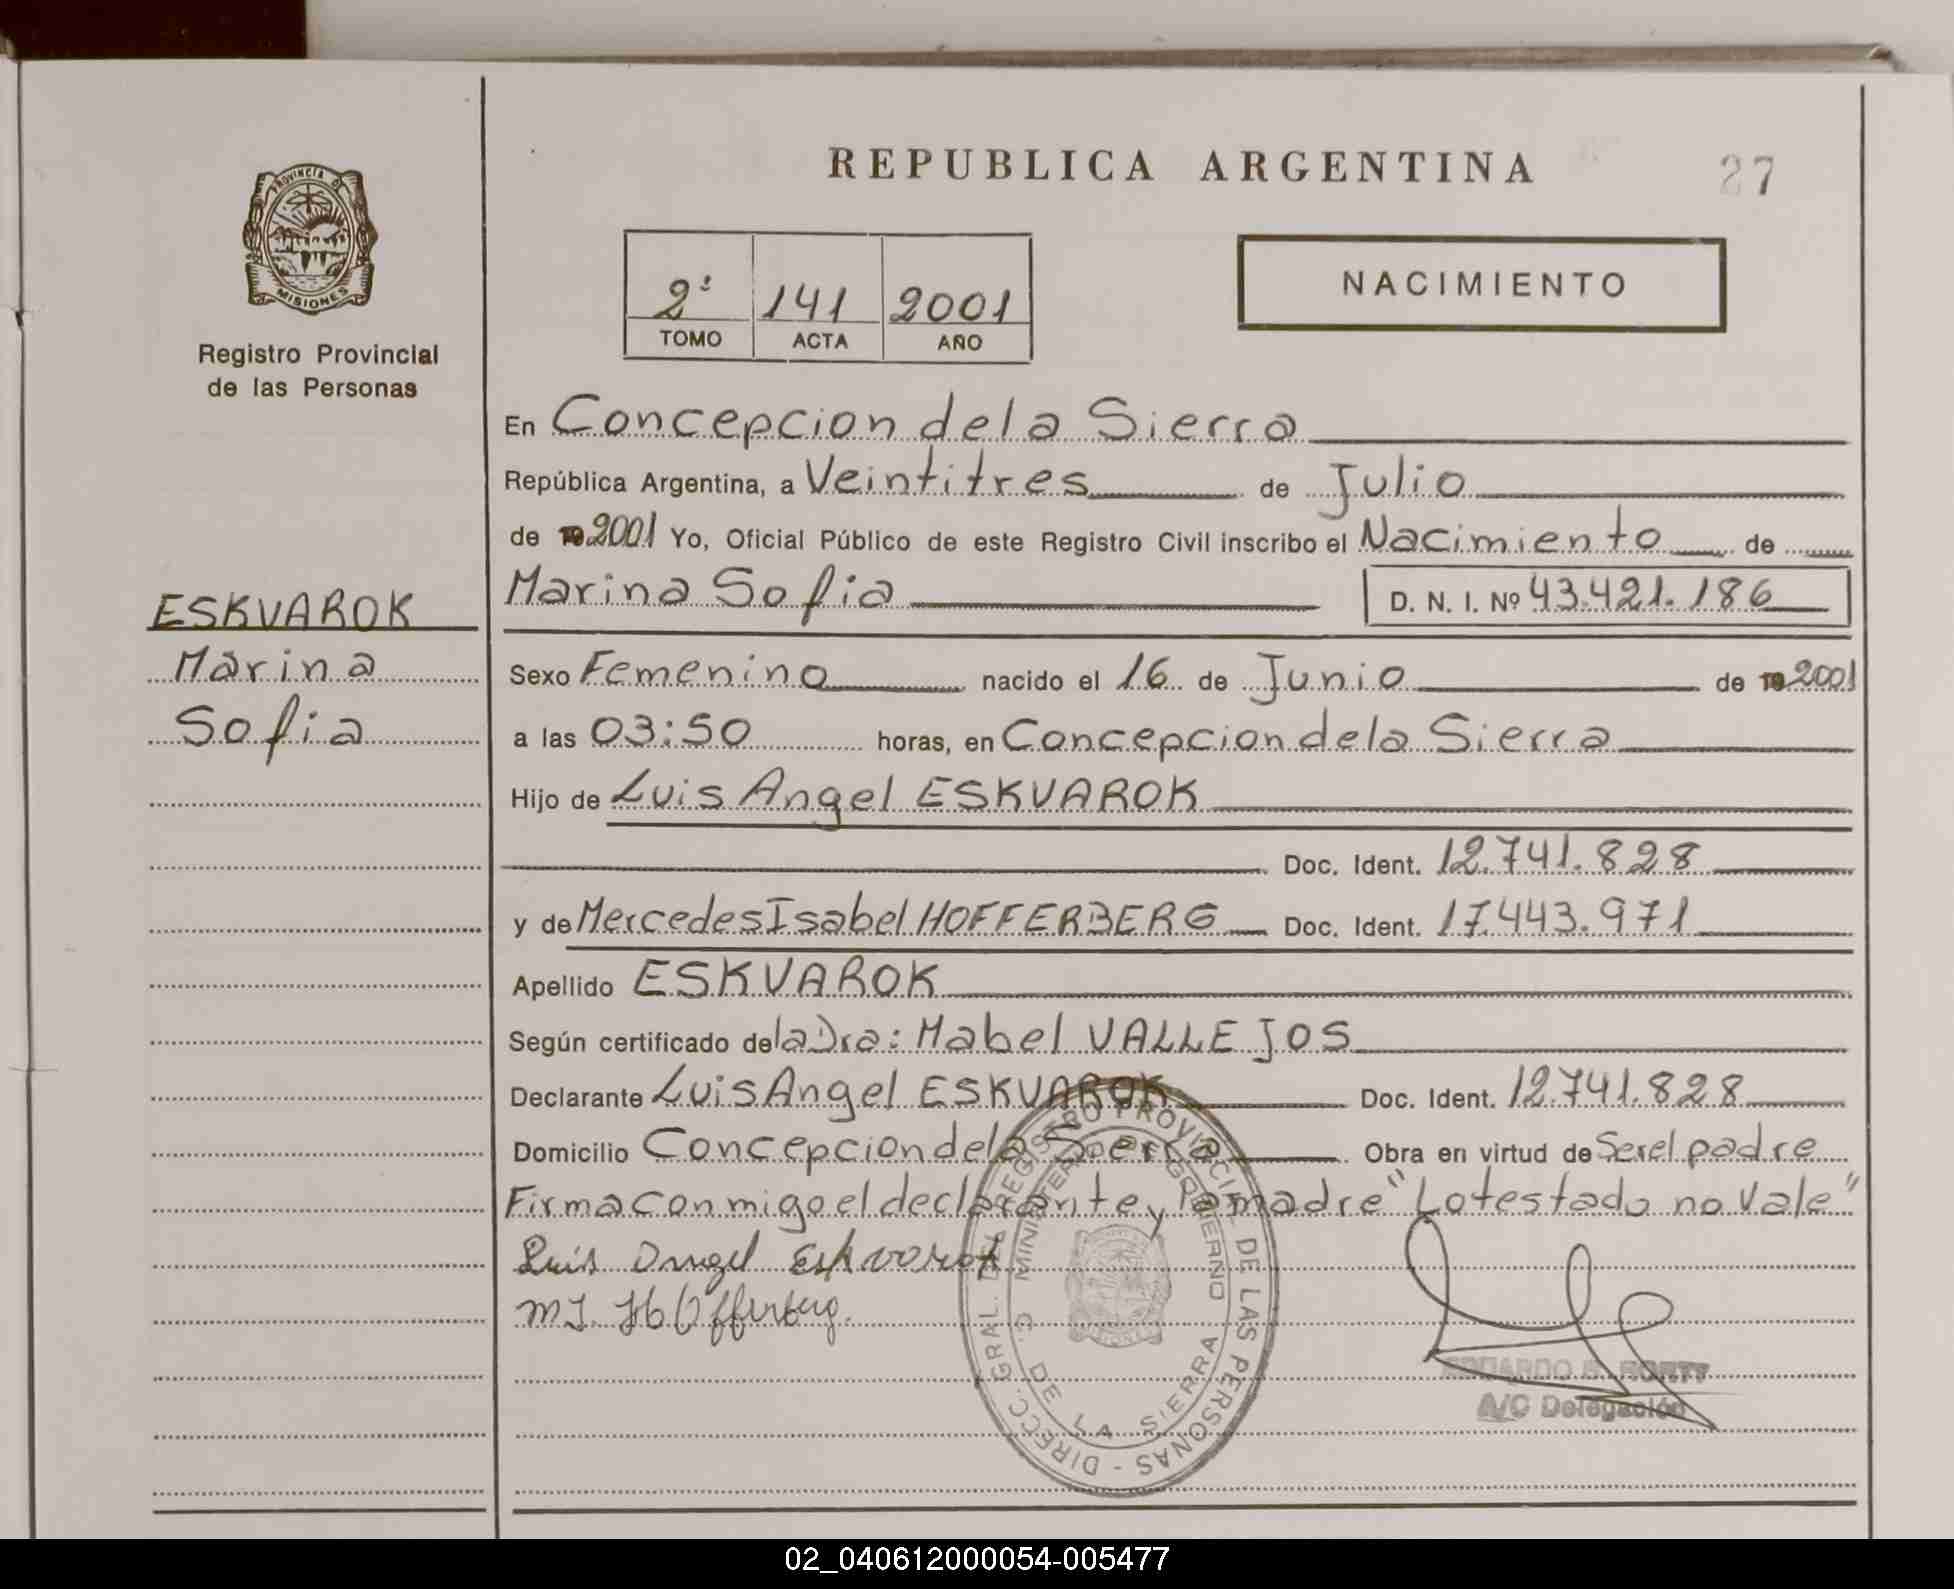 REPUBLICA ARGENTINA
27
PROVINCIA D
MISIONES
Registro Provincial
de las Personas
2º 141 2001
TOMO ACTA AÑO
NACIMIENTO
En Concepcion de la Sierra
República Argentina, a Veintitres de Julio
de 19 2001 Yo, Oficial Público de este Registro Civil inscribo el Nacimiento de
Marina Sofia D. N. I. Nº 43.421.186
ESKVAROK
Marina
Sofia
Sexo Femenino nacido el 16 de Junio de 19 2001
a las 03:50 horas, en Concepcion de la Sierra
Hijo de Luis Angel ESKVAROK
Doc. Ident. 12.741.828
y de Mercedes Isabel HOFFERBERG Doc. Ident. 17.443.971
Apellido ESKVAROK
Según certificado de la Dra: Mabel VALLEJOS
Declarante Luis Angel ESKVAROK Doc. Ident. 12.741.828
Domicilio Concepcion de la Sierra Obra en virtud de Ser el padre
Firma conmigo el declarante y la madre "Lo testado no Vale"
Luis Angel Eskvarok
M I. Hofferberg.
DIRECC. GRAL. DEL REGISTRO PROVINCIAL DE LAS PERSONAS -
MINISTERIO DE GOBIERNO
C. DE LA SIERRA
EDUARDO
A/C Delegación
02_040612000054-005477